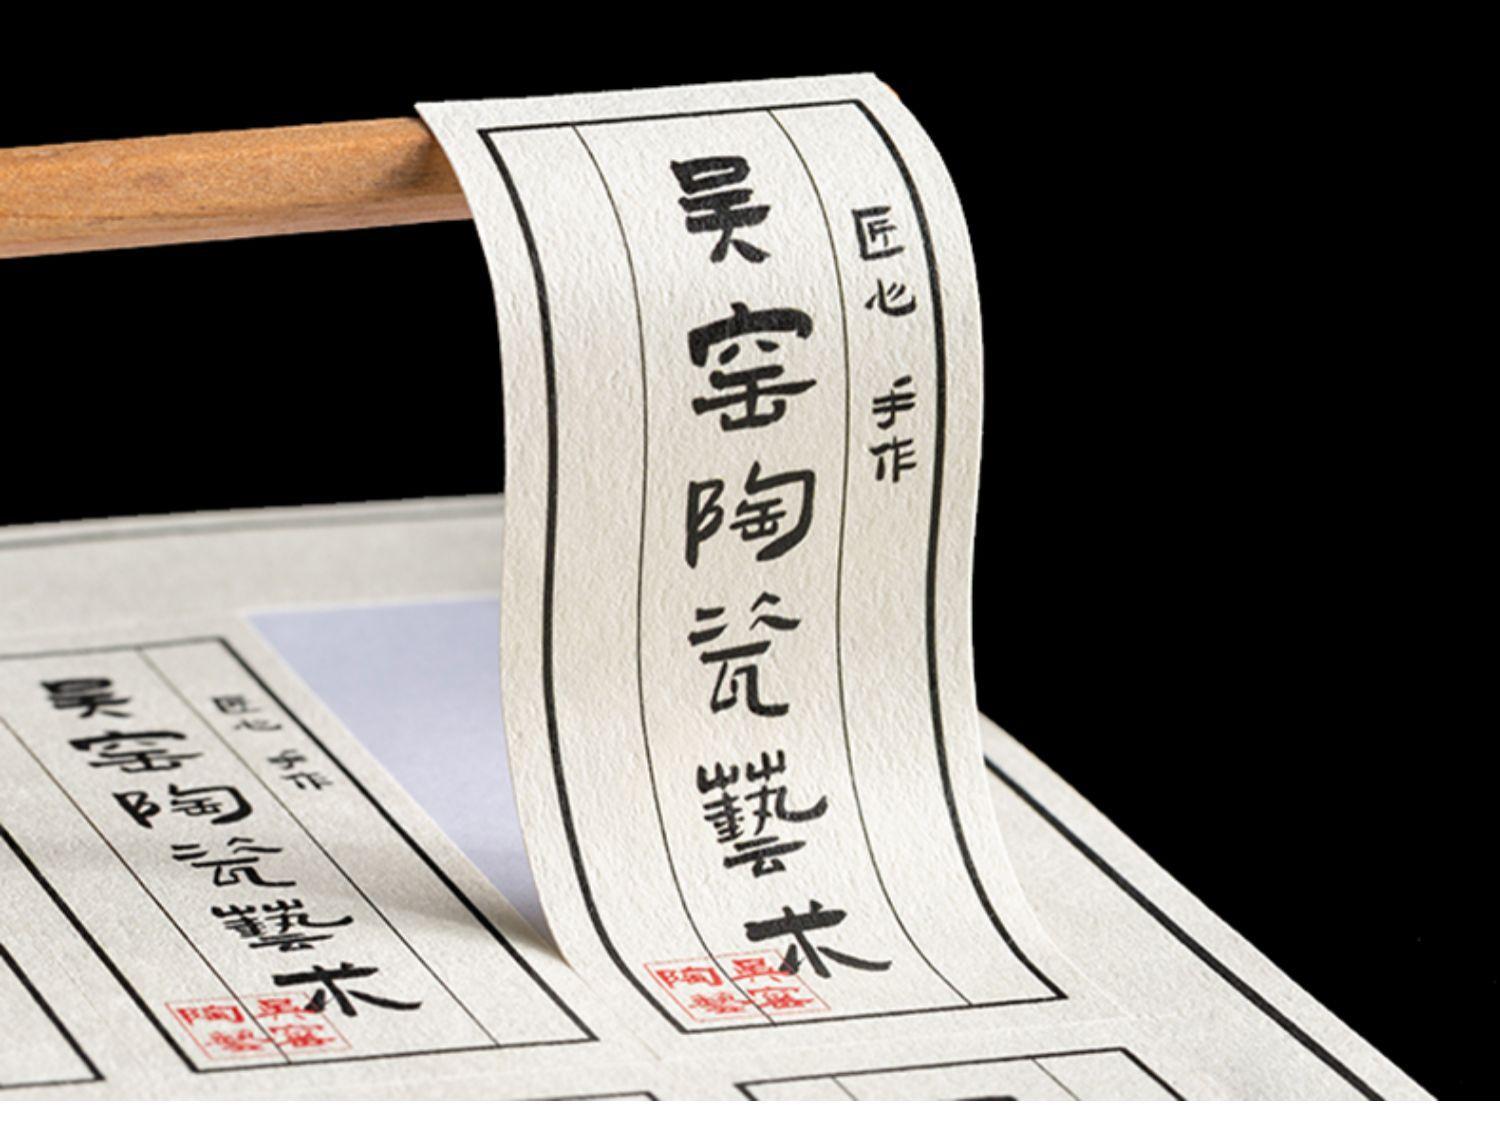 匠心 手作
吴窑陶瓷藝术
吴窑
陶藝
匠心 手作
吴窑陶瓷藝术
吴窑
陶藝